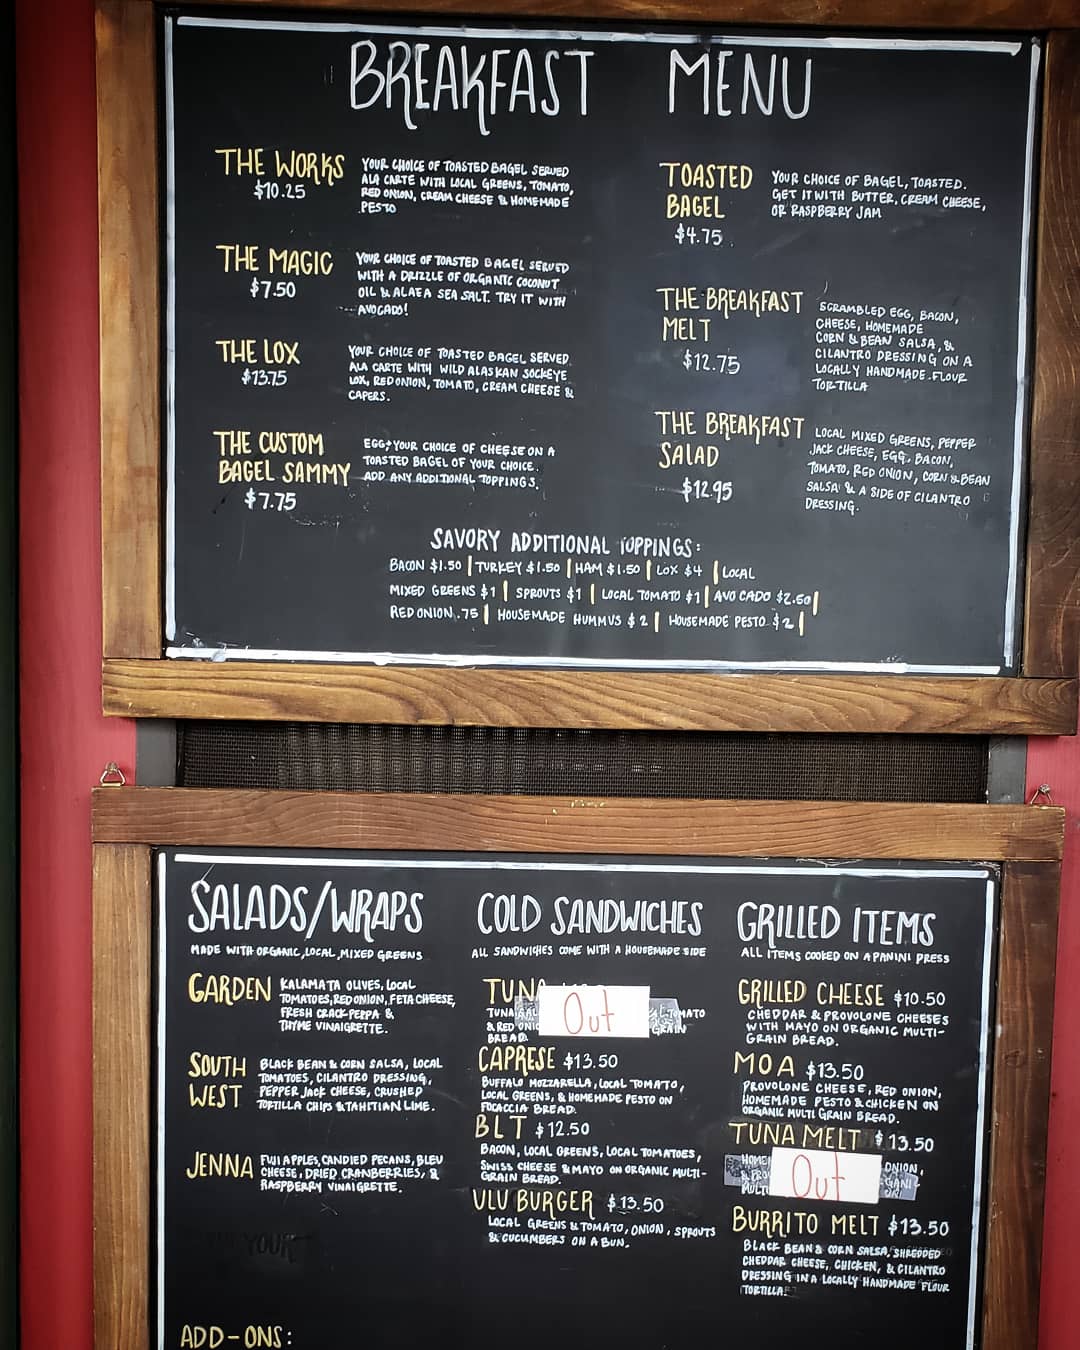 BREAKFAST MENU
THE WORKS
$10.25
YOUR CHOICE OF TOASTED BAGEL SERVED
ALA CARTE WITH LOCAL GREENS, TOMATO,
RED ONION, CREAM CHEESE & HOMEMADE
PESTO
THE MAGIC
$7.50
YOUR CHOICE OF TOASTED BAGEL SERVED
WITH A DRIZZLE OF ORGANIC COCONUT
OIL & ALAEA SEA SALT. TRY IT WITH
AVOCADO!
THE LOX
$13.75
YOUR CHOICE OF TOASTED BAGEL SERVED
ALA CARTE WITH WILD ALASKAN SOCKEYE
LOX, RED ONION, TOMATO, CREAM CHEESE &
CAPERS.
THE CUSTOM
BAGEL SAMMY
$7.75
EGG + YOUR CHOICE OF CHEESE ON A
TOASTED BAGEL OF YOUR CHOICE.
ADD ANY ADDITIONAL TOPPINGS.
TOASTED
BAGEL
$4.75
YOUR CHOICE OF BAGEL, TOASTED.
GET IT WITH BUTTER, CREAM CHEESE,
OR RASPBERRY JAM
THE BREAKFAST
MELT
$12.75
SCRAMBLED EGG, BACON,
CHEESE, HOMEMADE
CORN & BEAN SALSA, &
CILANTRO DRESSING ON A
LOCALLY HANDMADE FLOUR
TORTILLA
THE BREAKFAST
SALAD
$12.95
LOCAL MIXED GREENS, PEPPER
JACK CHEESE, EGG, BACON,
TOMATO, RED ONION, CORN & BEAN
SALSA & A SIDE OF CILANTRO
DRESSING.
SAVORY ADDITIONAL TOPPINGS:
BACON $1.50 | TURKEY $1.50 | HAM $1.50 | LOX $4 | LOCAL
MIXED GREENS $1 | SPROUTS $1 | LOCAL TOMATO $1 | AVOCADO $2.50 |
RED ONION .75 | HOUSEMADE HUMMUS $2 | HOUSEMADE PESTO $2 |
SALADS/WRAPS
MADE WITH ORGANIC, LOCAL, MIXED GREENS
GARDEN
KALAMATA OLIVES, LOCAL
TOMATOES, RED ONION, FETA CHEESE,
FRESH CRACK PEPPA &
THYME VINAIGRETTE.
SOUTH
WEST
BLACK BEAN & CORN SALSA, LOCAL
TOMATOES, CILANTRO DRESSING,
PEPPER JACK CHEESE, CRUSHED
TORTILLA CHIPS & TAHITIAN LIME.
JENNA
FUJI APPLES, CANDIED PECANS, BLEU
CHEESE, DRIED CRANBERRIES, &
RASPBERRY VINAIGRETTE.
YOUR
ADD-ONS:
COLD SANDWICHES
ALL SANDWICHES COME WITH A HOUSEMADE SIDE
TUNA
Out
TUNA TOMATO
& RED GRAIN
BREAD.
CAPRESE $13.50
BUFFALO MOZZARELLA, LOCAL TOMATO,
LOCAL GREENS, & HOMEMADE PESTO ON
FOCACCIA BREAD.
BLT $12.50
BACON, LOCAL GREENS, LOCAL TOMATOES,
SWISS CHEESE & MAYO ON ORGANIC MULTI-
GRAIN BREAD.
ULU BURGER $13.50
LOCAL GREENS & TOMATO, ONION, SPROUTS
& CUCUMBERS ON A BUN.
GRILLED ITEMS
ALL ITEMS COOKED ON A PANINI PRESS
GRILLED CHEESE $10.50
CHEDDAR & PROVOLONE CHEESES
WITH MAYO ON ORGANIC MULTI-
GRAIN BREAD.
MOA $13.50
PROVOLONE CHEESE, RED ONION,
HOMEMADE PESTO & CHICKEN ON
ORGANIC MULTI GRAIN BREAD.
TUNA MELT $13.50
ONION,
Out
BURRITO MELT $13.50
BLACK BEAN & CORN SALSA, SHREDDED
CHEDDAR CHEESE, CHICKEN, & CILANTRO
DRESSING IN A LOCALLY HANDMADE FLOUR
TORTILLA.